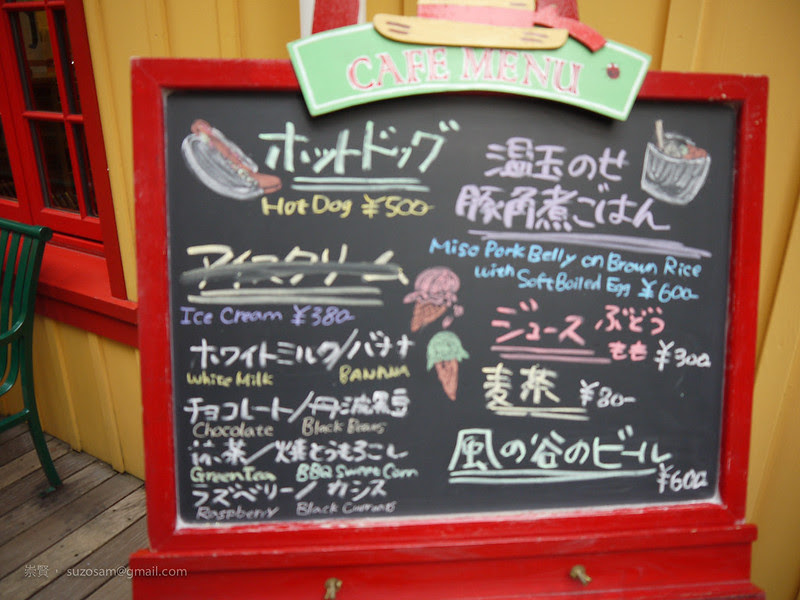 CAFE MENU
ホットドッグ
Hot Dog ¥500-
アイスクリーム
Ice Cream ¥380
ホワイトミルク/バナナ
White Milk BANANA
チョコレート/丹波黒豆
Chocolate Black Beans
抹茶/焼とうもろこし
Green Tea BBQ Sweet Corn
ラズベリー/カシス
Raspberry Black Currant
温玉のせ
豚角煮ごはん
Miso Pork Belly on Brown Rice
with Soft Boiled Egg ¥600-
ジュース ぶどう
もも ¥300
麦茶 ¥80-
風の谷のビール
¥600
崇賢, suzosam@gmail.com